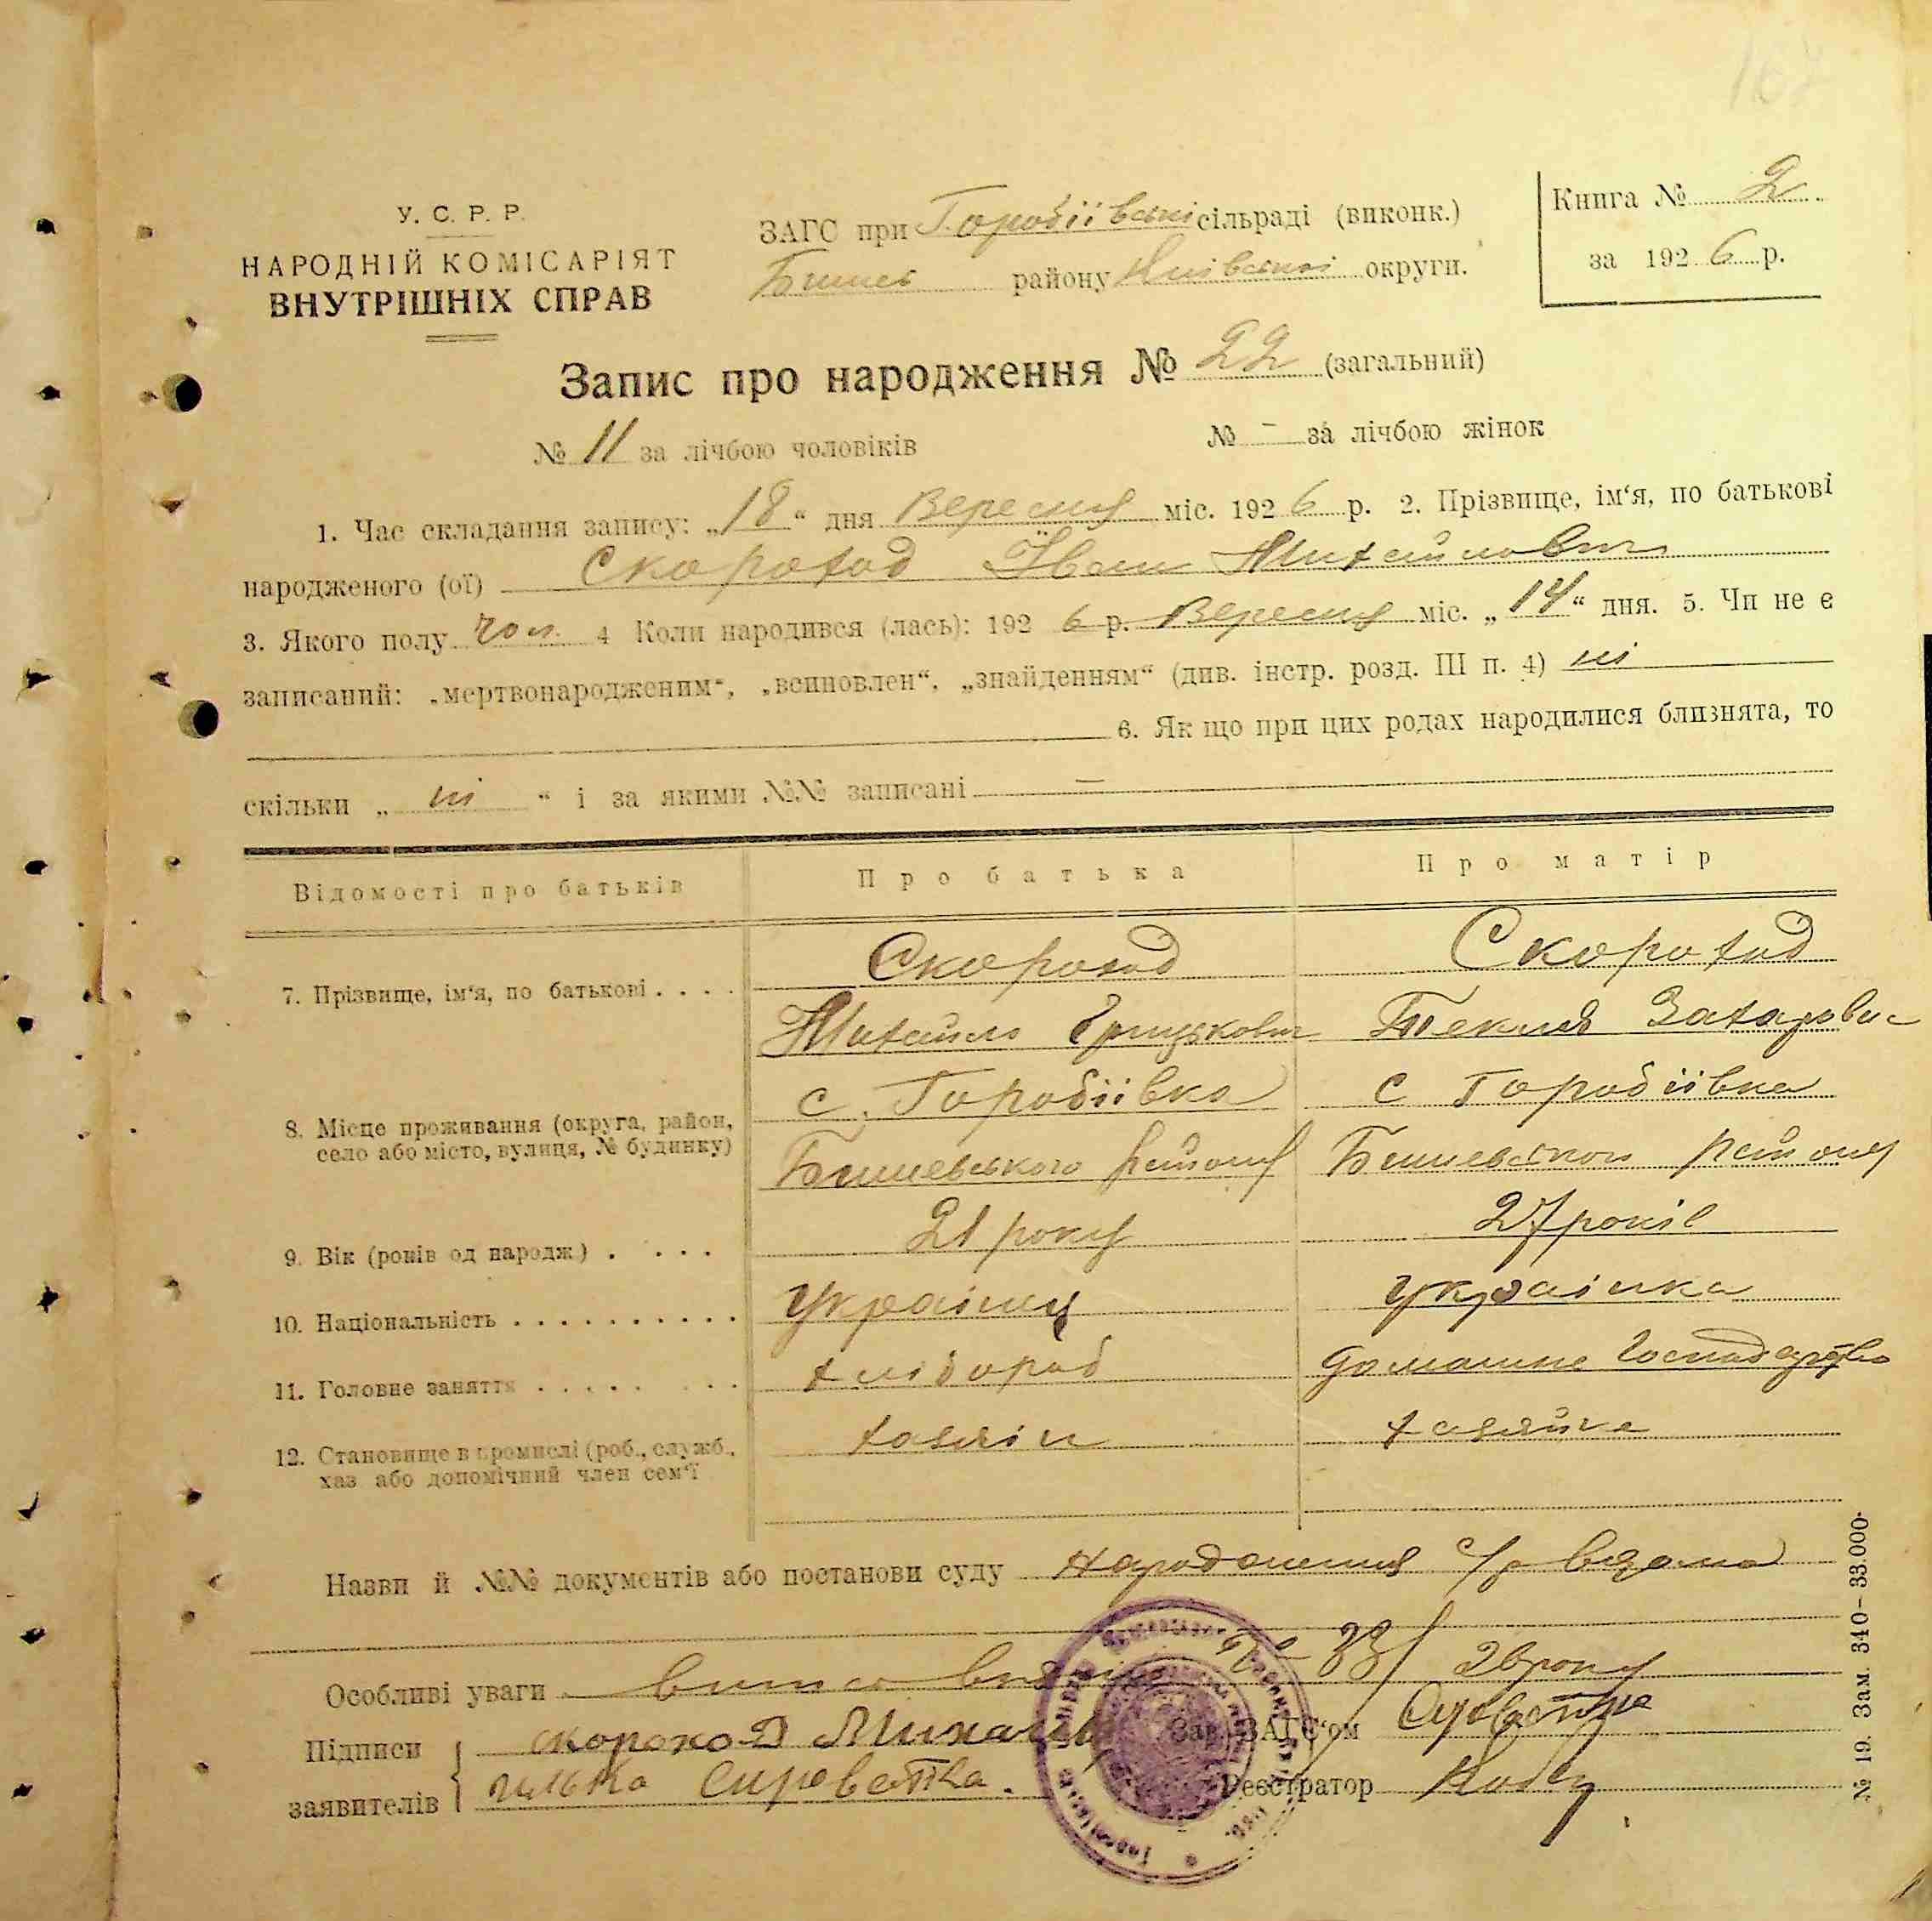 167
У. С. Р. Р.
НАРОДНІЙ КОМІСАРІЯТ
ВНУТРІШНІХ СПРАВ
ЗАГС при Горобіївські сільраді (виконк.)
Бишев району Київської округи.
Книга № 2
за 1926 р.
Запис про народження № 22 (загальний)
№ 11 за лічбою чоловіків № - за лічбою жінок
1. Час складання запису: „18“ дня Вересня міс. 1926 р. 2. Прізвище, ім‘я, по батькові
народженого (ої) Скороход Іван Михайлович
3. Якого полу чол. 4 Коли народився (лась): 1926 р. Вересня міс. „14“ дня. 5. Чи не є
записаний: „мертвонародженим“, „всиновлен“, „знайденням“ (див. інстр. розд. III п. 4) ні
6. Як що при цих родах народилися близнята, то
скільки „ ні “ і за якими №№ записані —
Відомості про батьків Про батька Про матір
7. Прізвище, ім‘я, по батькові . . . . Скороход Скороход
Михайло Грицькович Текля Захаровна
8. Місце проживання (округа, район, село або місто, вулиця, № будинку) с. Горобіївка с Горобіївка
Бишевського району Бишевського району
9. Вік (років од народж.) . . . . 21 року 27 років
10. Національність . . . . . . . . . . Українец українка
11. Головне заняття . . . . . . . . хлібороб домашне господарство
12. Становище в промислі (роб., служб., хаз або допомічний член сем‘ї хазяїн хазяйка
Назви й №№ документів або постанови суду народження с/р відома
Особливі уваги
Підписи заявителів
скороход Михаил
Сироватка.
Зав. ЗАГС‘ом
Реєстратор
№ 19. Зам. 340—33.000.